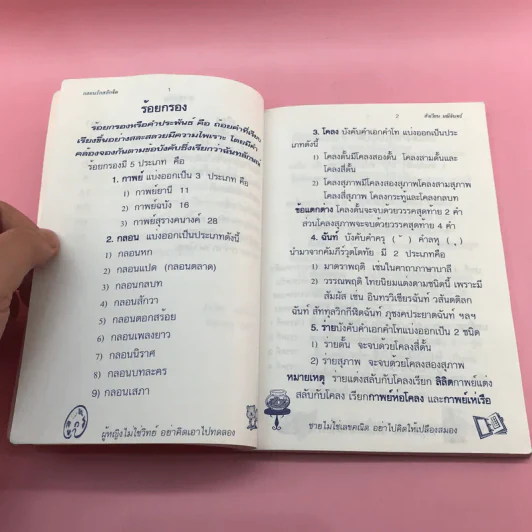 กลอนรักสลักจิต 1
ร้อยกรอง
ร้อยกรองหรือคำประพันธ์ คือ ถ้อยคำที่เรียบ
เรียงขึ้นอย่างสละสลวยมีความไพเราะ โดยมีคำ
คล้องจองกันตามข้อบังคับซึ่งเรียกว่าฉันทลักษณ์
ร้อยกรองมี 5 ประเภท คือ
1. กาพย์ แบ่งออกเป็น 3 ประเภท คือ
1) กาพย์ยานี 11
2) กาพย์ฉบัง 16
3) กาพย์สุรางคนางค์ 28
2. กลอน แบ่งออกเป็นประเภทดังนี้
1) กลอนหก
2) กลอนแปด (กลอนตลาด)
3) กลอนกลบท
4) กลอนสักวา
5) กลอนดอกสร้อย
6) กลอนเพลงยาว
7) กลอนนิราศ
8) กลอนบทละคร
9) กลอนเสภา
ผู้หญิงไม่ใช่วิทย์ อย่าคิดเอาไปทดลอง
2
3. โคลง บังคับคำเอกคำโท แบ่งออกเป็นประ
เภทดังนี้
1) โคลงดั้นมีโคลงสองดั้น โคลงสามดั้นและ
โคลงสี่ดั้น
2) โคลงสุภาพมีโคลงสองสุภาพโคลงสามสุภาพ
โคลงสี่สุภาพ โคลงกระทู้และโคลงกลบท
ข้อแตกต่าง โคลงดั้นจะจบด้วยวรรคสุดท้าย 2 คำ
ส่วนโคลงสุภาพจะจบด้วยวรรคสุดท้าย 4 คำ
4. ฉันท์ บังคับคำครุ ( ั ) คำลหุ ( ุ )
นำมาจากคัมภีร์วุตโตทัย มี 2 ประเภทคือ
1) มาตราพฤติ เช่นในคาถาภาษาบาลี
2) วรรณพฤติ ไทยนิยมแต่งตามชนิดนี้ เพราะมี
สัมผัส เช่น อินทรวิเชียรฉันท์ วสันตดิลก
ฉันท์ สัททุลวิกกีฬิตฉันท์ ภุชงคประยาตฉันท์ ฯลฯ
5. ร่ายบังคับคำเอกคำโทแบ่งออกเป็น 2 ชนิด
1) ร่ายดั้น จะจบด้วยโคลงสี่ดั้น
2) ร่ายสุภาพ จะจบด้วยโคลงสองสุภาพ
หมายเหตุ ร่ายแต่งสลับกับโคลงเรียก ลิลิตกาพย์แต่ง
สลับกับโคลง เรียกกาพย์ห่อโคลง และกาพย์เห่เรือ
ชายไม่ใช่เลขคณิต อย่าไปคิดให้เปลืองสมอง